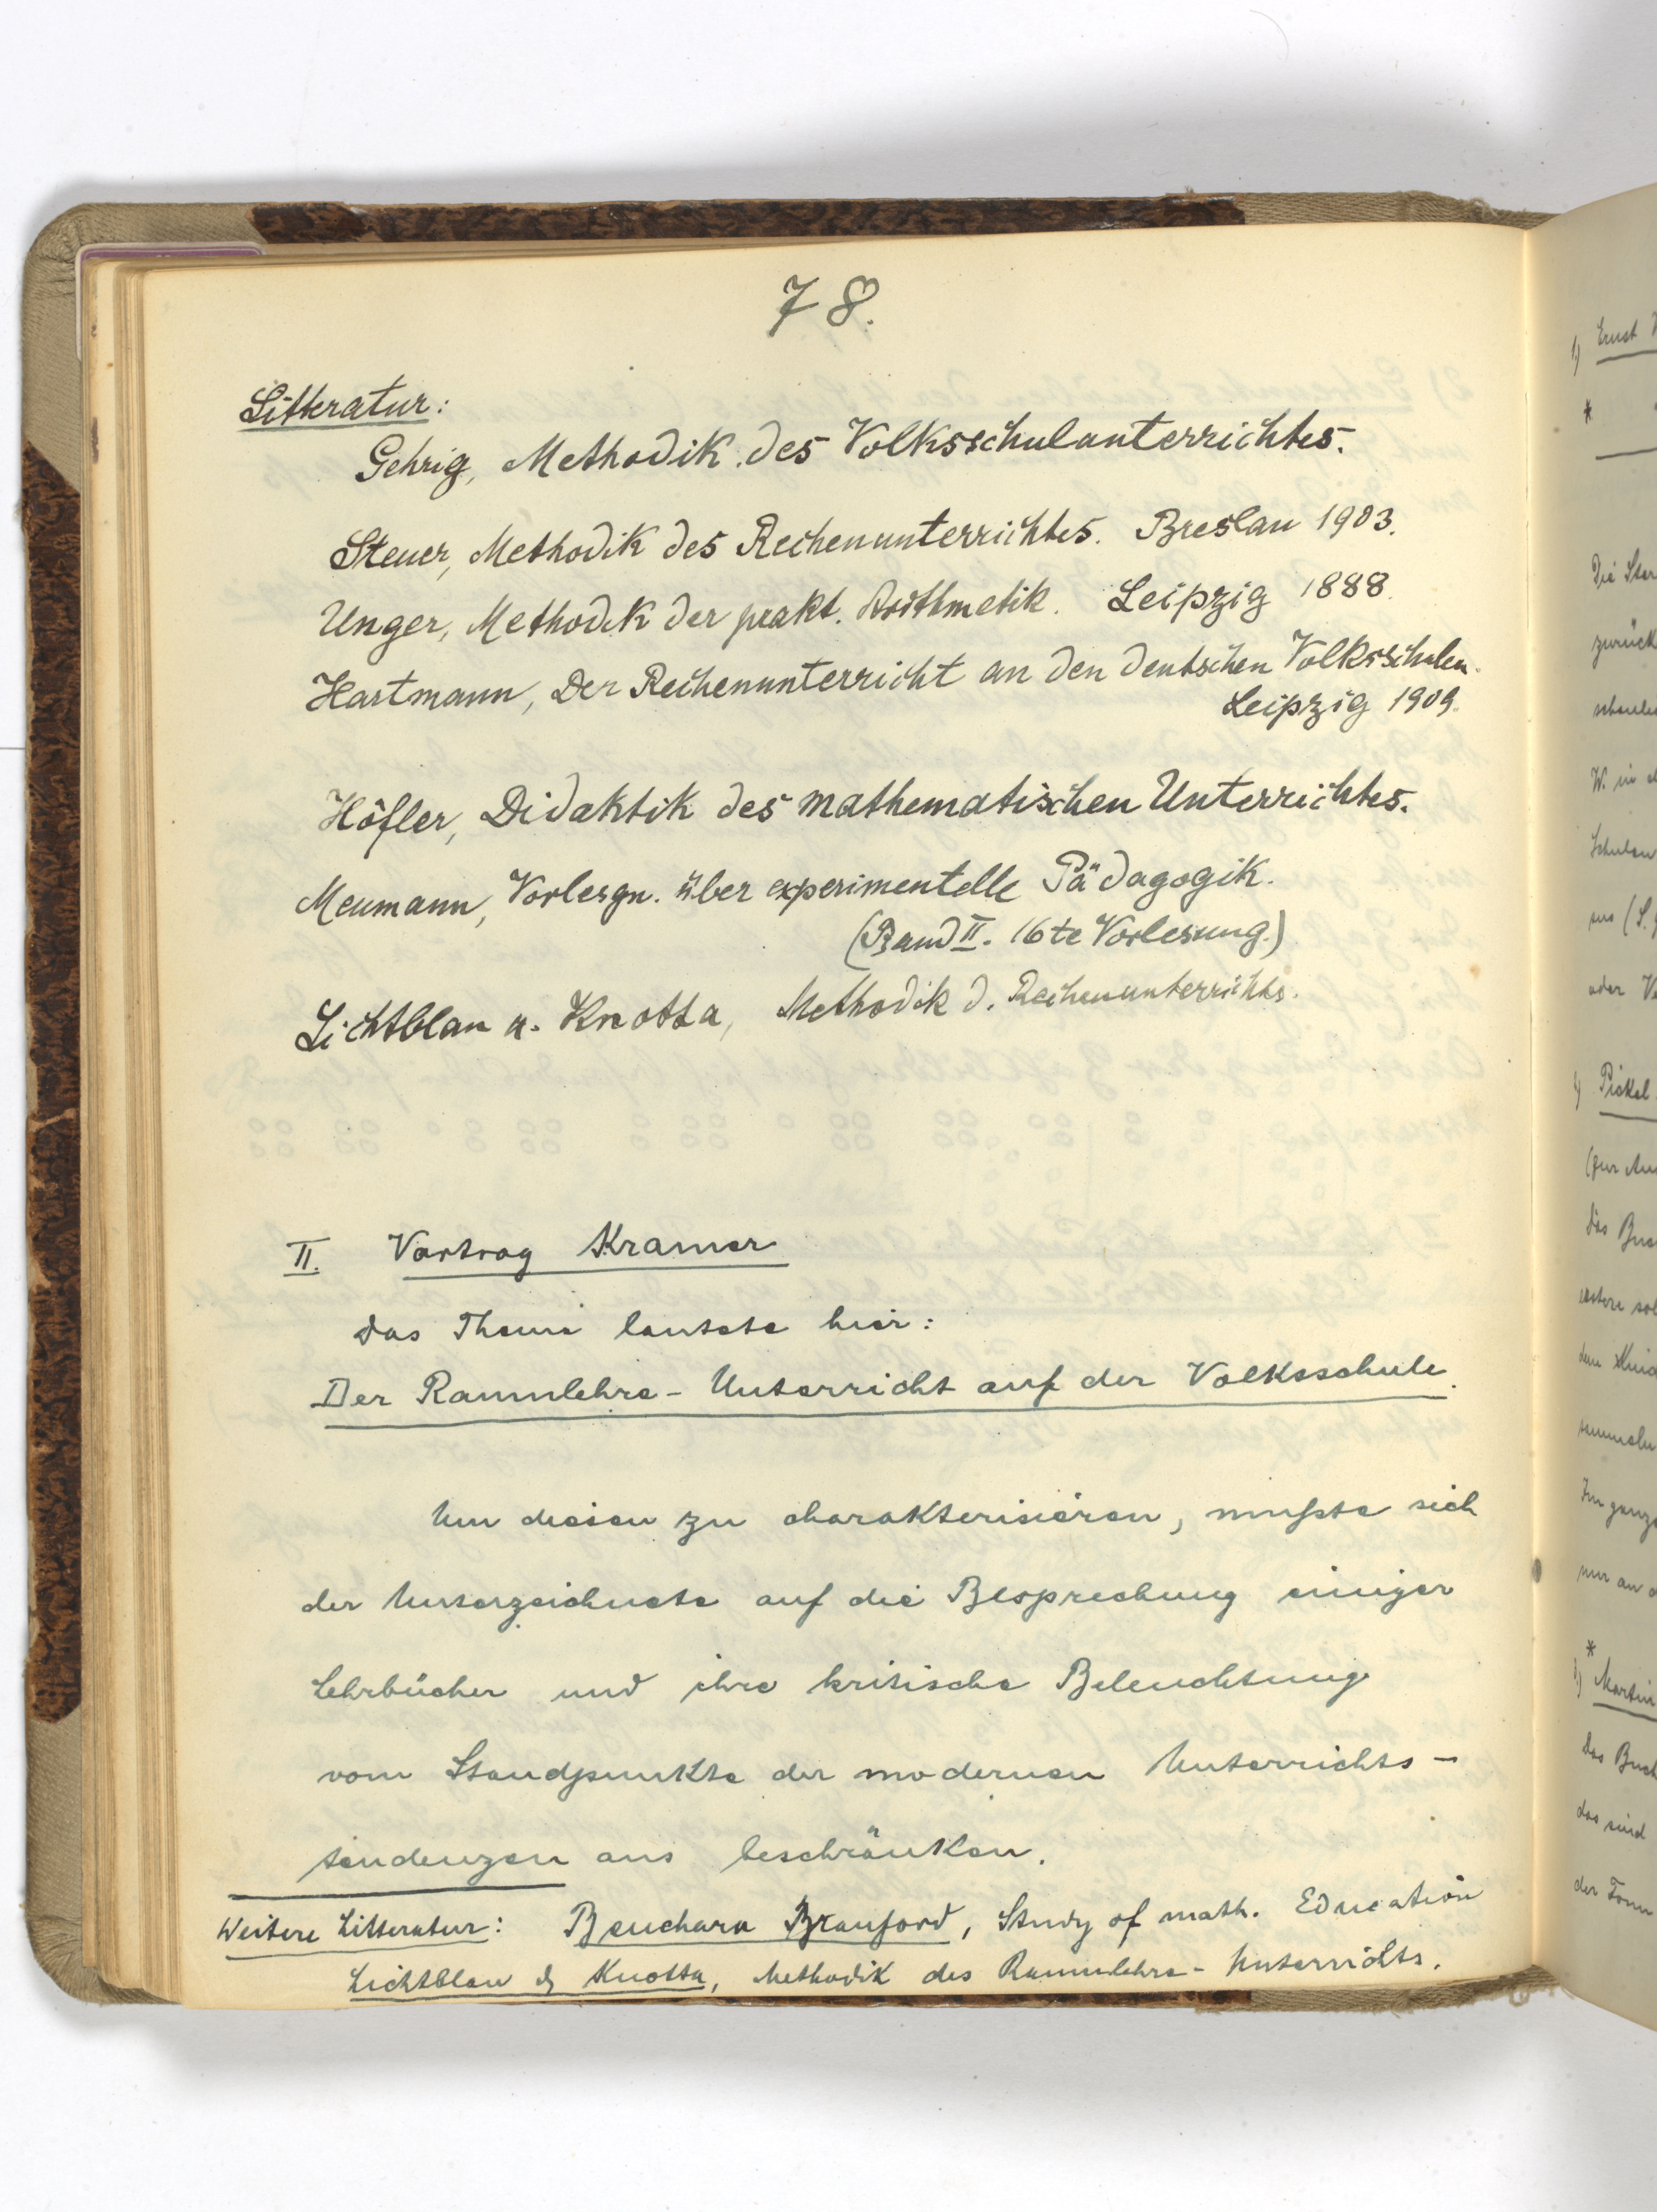 78.
Litteratur:
Gehrig, Methodik des Volksschulunterrichtes.
Steuer, Methodik des Rechenunterrichtes. Breslau 1903.
Unger, Methodik der prakt. Arithmetik. Leipzig 1888.
Hartmann, Der Rechenunterricht an den deutschen Volksschulen.
Leipzig 1909.
Höfler, Didaktik des mathematischen Unterrichtes.
Meumann, Vorlesgn. über experimentelle Pädagogik.
(Band II. 16te Vorlesung.)
Lichtblau u. Knotta, Methodik d. Rechenunterrichts.
II. Vortrag Kramer
Das Thema lautete hier:
Der Raumlehre-Unterricht auf der Volksschule.
Um diesen zu charakterisieren, mußte sich
der Unterzeichnete auf die Besprechung einiger
Lehrbücher und ihre kritische Beleuchtung
vom Standpunkte der modernen Unterrichts-
tendenzen aus beschränken.
Weitere Litteratur: Benchara Branford, Study of math. Education
Lichtblau & Knotta, Methodik des Raumlehre-Unterrichts.
1) Ernst
*
Die
zurück
W. in
oder
1) Pickel
(zur
das
dem
Im
nur an
*
1) Martin
Das Buch
das sind
der